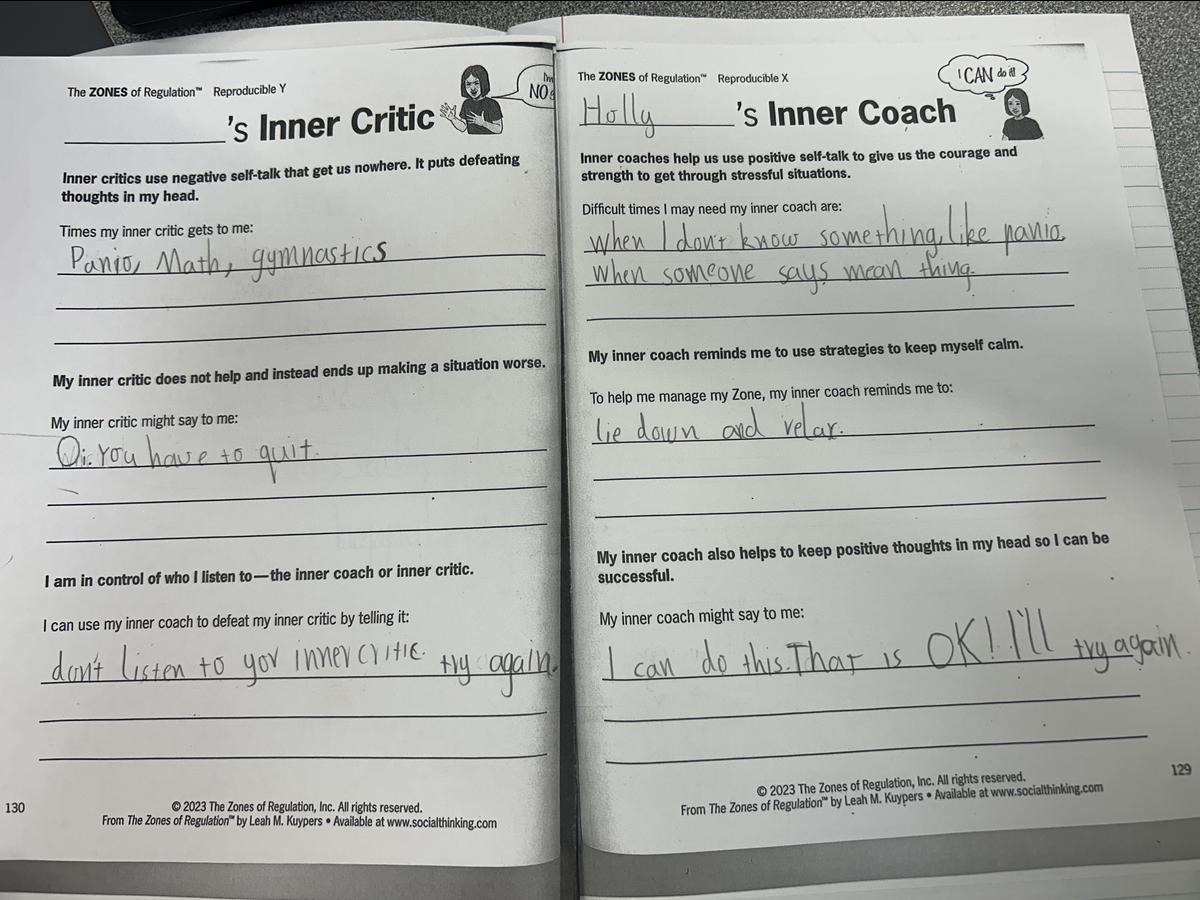 The ZONES of Regulation™ Reproducible Y
I'm
NO
's Inner Critic
Inner critics use negative self-talk that get us nowhere. It puts defeating
thoughts in my head.
Times my inner critic gets to me:
Panio, Math, gymnastics
My inner critic does not help and instead ends up making a situation worse.
My inner critic might say to me:
You have to quit.
I am in control of who I listen to—the inner coach or inner critic.
I can use my inner coach to defeat my inner critic by telling it:
don't listen to yor inner critic. try again.
130
© 2023 The Zones of Regulation, Inc. All rights reserved.
From The Zones of Regulation™ by Leah M. Kuypers • Available at www.socialthinking.com
The ZONES of Regulation™ Reproducible X
I CAN do it!
Holly 's Inner Coach
Inner coaches help us use positive self-talk to give us the courage and
strength to get through stressful situations.
Difficult times I may need my inner coach are:
When I don't know something, like panio.
When someone says mean thing.
My inner coach reminds me to use strategies to keep myself calm.
To help me manage my Zone, my inner coach reminds me to:
lie down and relax.
My inner coach also helps to keep positive thoughts in my head so I can be
successful.
My inner coach might say to me:
I can do this. That is OK! I'll try again.
129
© 2023 The Zones of Regulation, Inc. All rights reserved.
From The Zones of Regulation™ by Leah M. Kuypers • Available at www.socialthinking.com